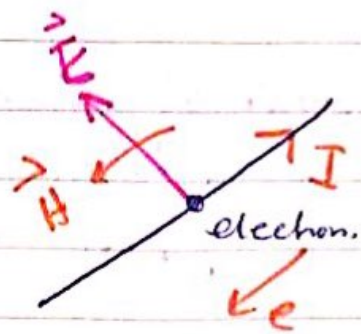 E
H
I
electron.
e